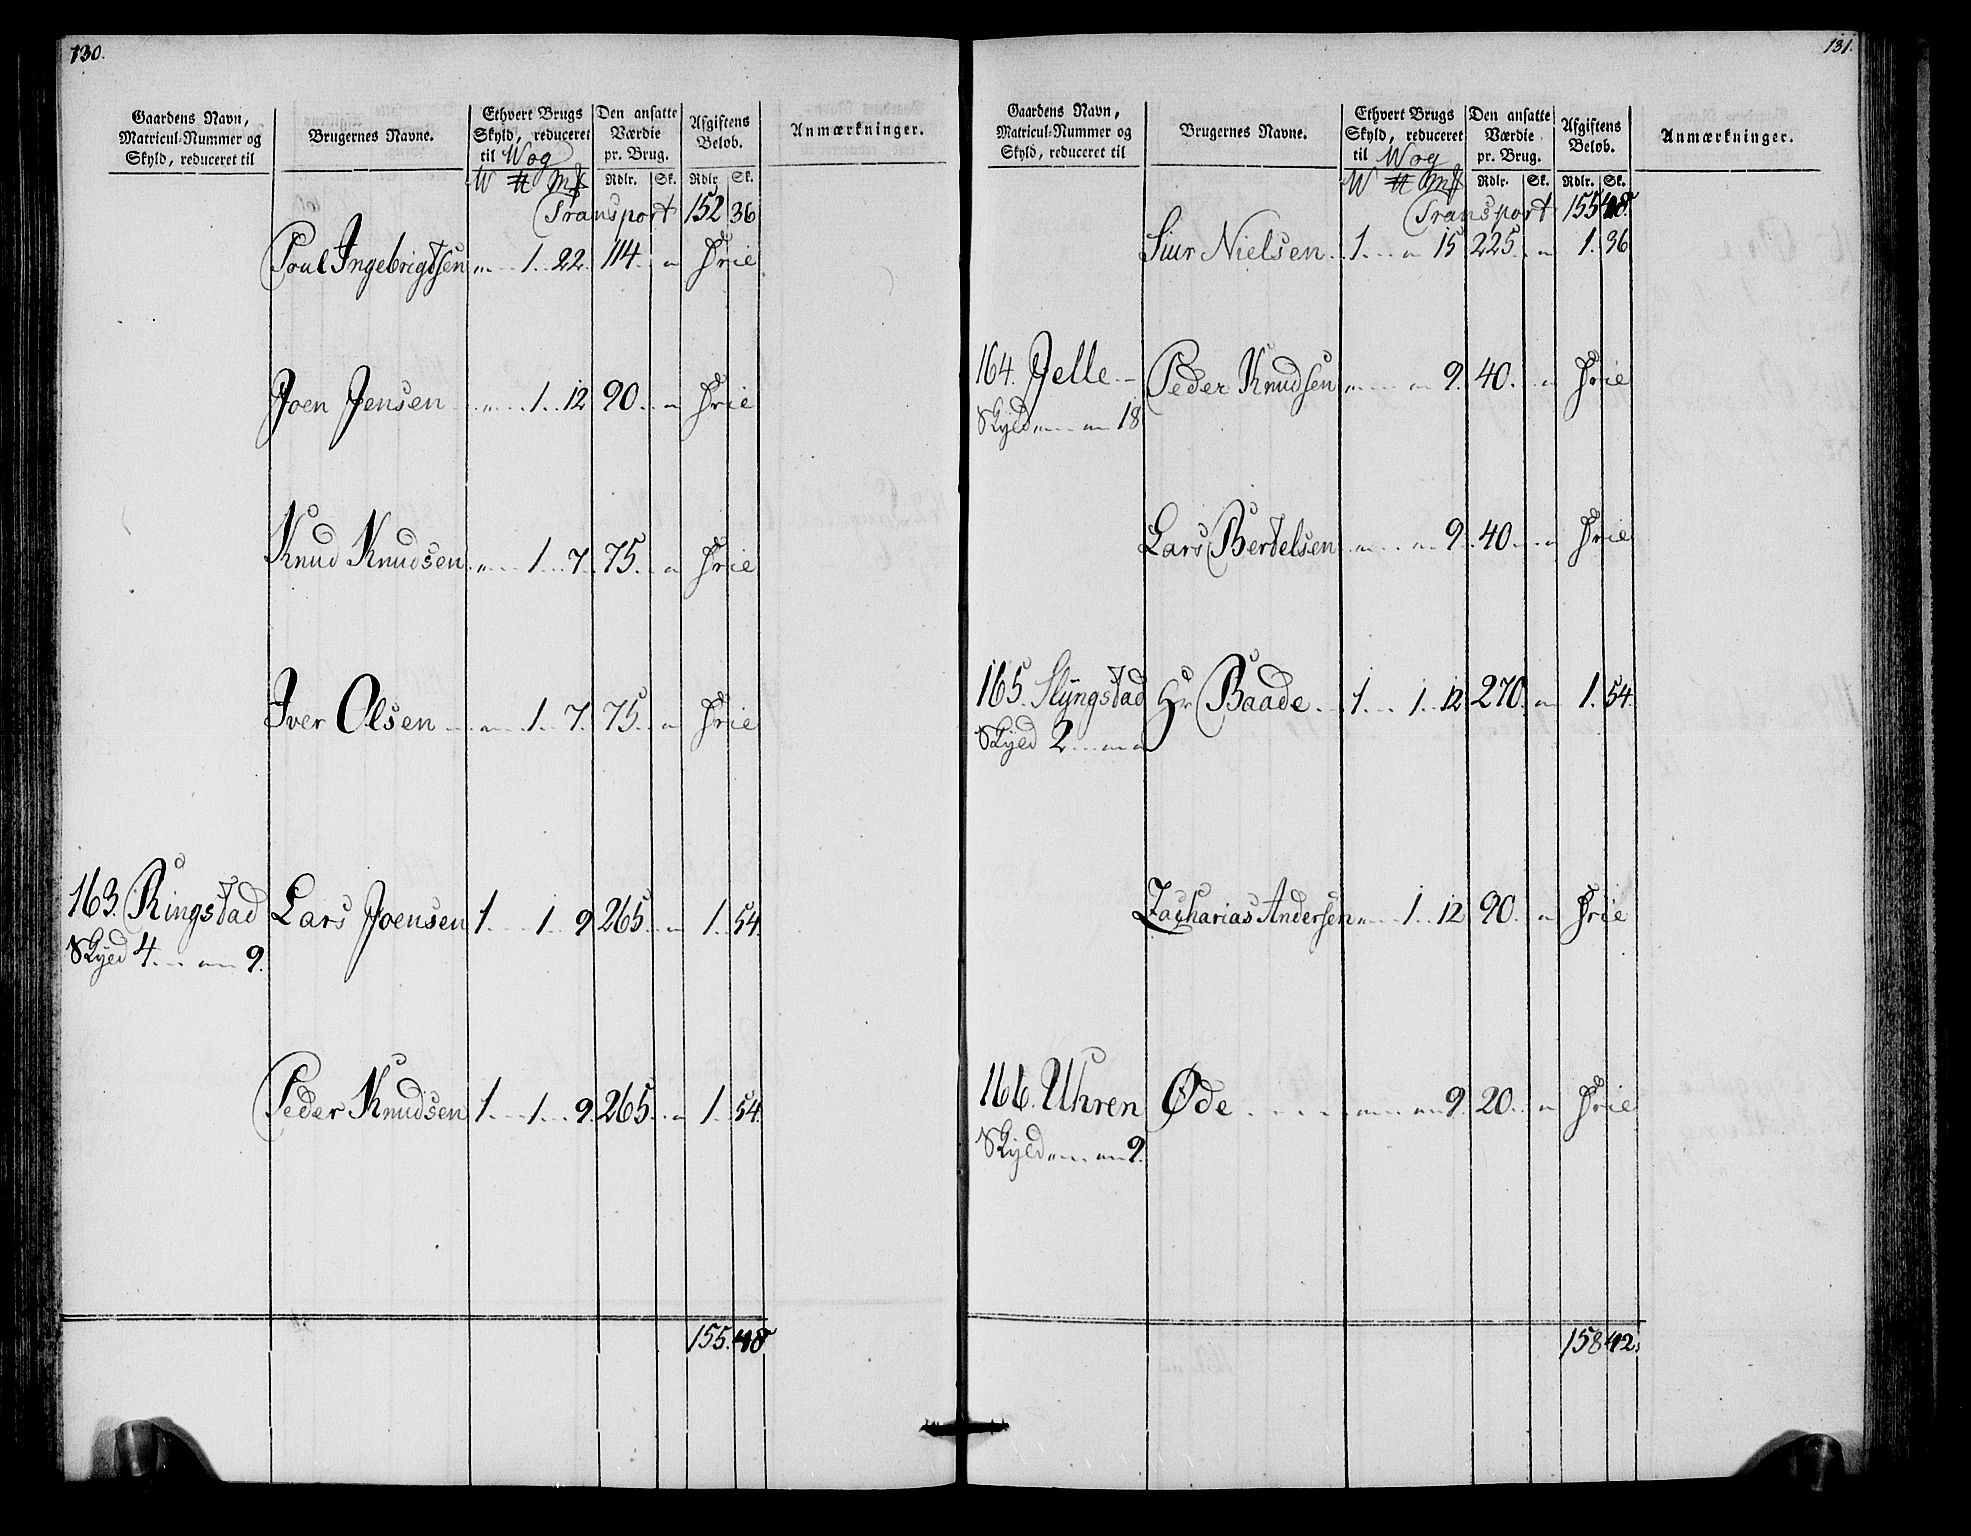 130.
Gaardens Navn, Matricul-Nummer og Skyld, reduceret til
Brugernes Navne.
Ethvert Brugs Skyld, reduceret til Wog
Den ansatte Værdie pr. Brug.
Afgiftens Beløb.
Anmærkninger.
W Rdlr. Sk. Rdlr. Sk.
Transport 152 36
Poul Ingebrigtsen „ 1. 22. 114. „ Frie
Joen Jensen „ 1. 12 90. „ Frie
Knud Knudsen „ 1. 7. 75. „ Frie
Iver Olsen „ 1. 7. 75. „ Frie
163. Ringstad Lars Joensen 1. 1. 9. 265. „ 1. 54.
Skyld 4. „ 9.
Peder Knudsen 1. 1. 9. 265. „ 1. 54.
155. 48
131.
Gaardens Navn, Matricul-Nummer og Skyld, reduceret til
Brugernes Navne.
Ethvert Brugs Skyld, reduceret til Wog
Den ansatte Værdie pr. Brug.
Afgiftens Beløb.
Anmærkninger.
W Rdlr. Sk. Rdlr. Sk.
Transport 155 48.
Siur Nielsen 1. „ 15 225. „ 1. 36
164. Jelle Peder Knudsen „ „ 9. 40. „ Frie
Skyld „ „ 18
Lars Bertelsen „ „ 9. 40. „ Frie
165. Slyngstad Hr Baade 1. 1. 12 270. „ 1. 54.
Skyld 2. „ „
Zacharias Andersen „ 1. 12 90. „ Frie
166. Uhren Øde „ „ 9. 20. „ Frie
Skyld „ „ 9.
158 42.